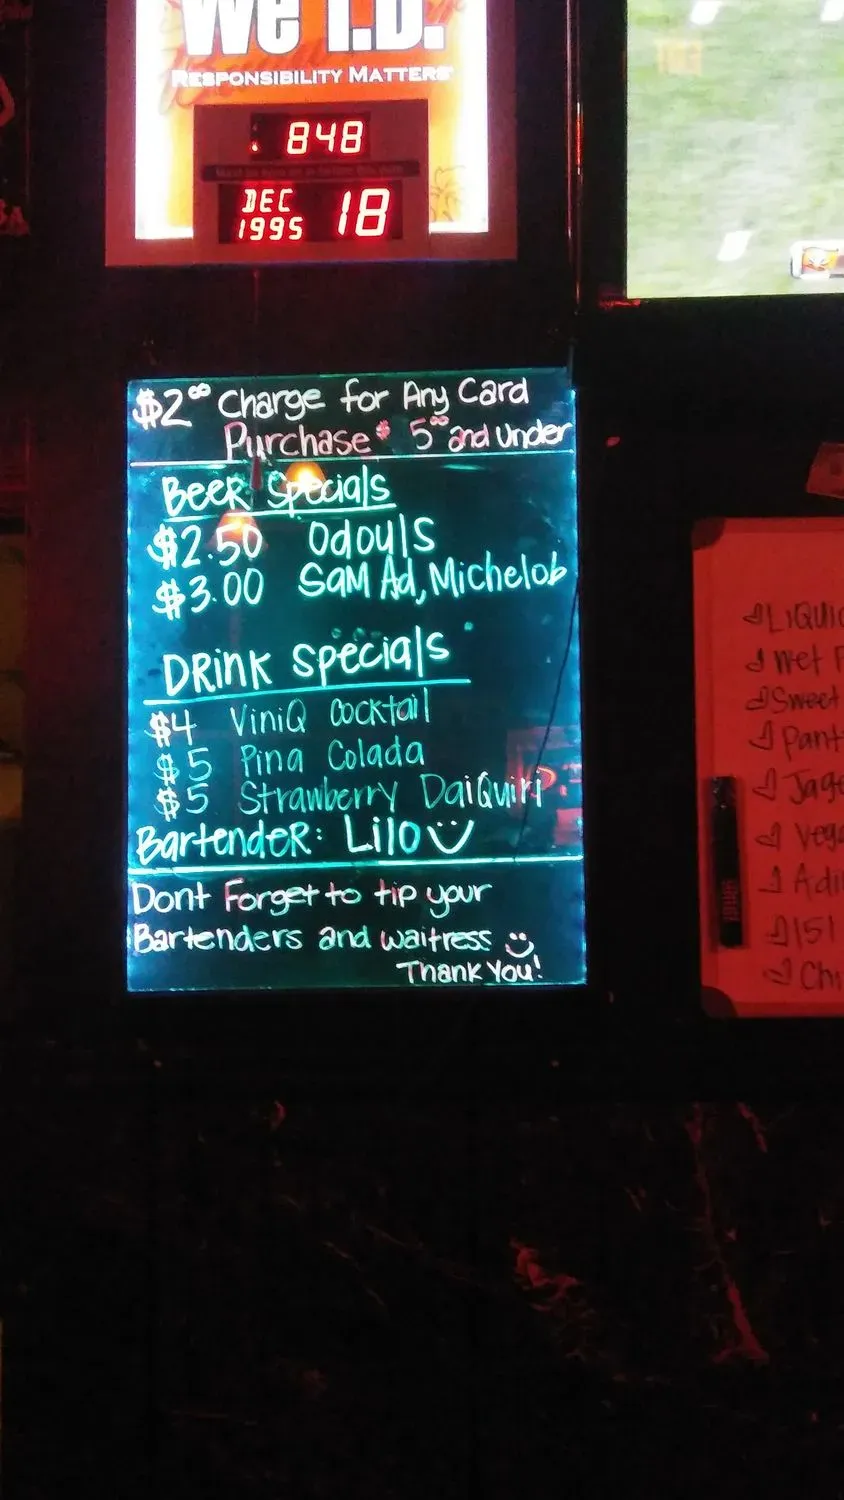 We I.D.
RESPONSIBILITY MATTERS
848
DEC
1995 18
$2⁰⁰ Charge for Any Card
Purchase $ 5⁰⁰ and Under
Beer Specials
$2.50 Odouls
$3.00 Sam Ad, Michelob
DRink Specials
$4 ViniQ Cocktail
$5 Pina Colada
$5 Strawberry DaiQuiri
BartendeR: Lilo
Dont Forget to tip your
Bartenders and waitress
Thank You!
Wet
Sweet
151